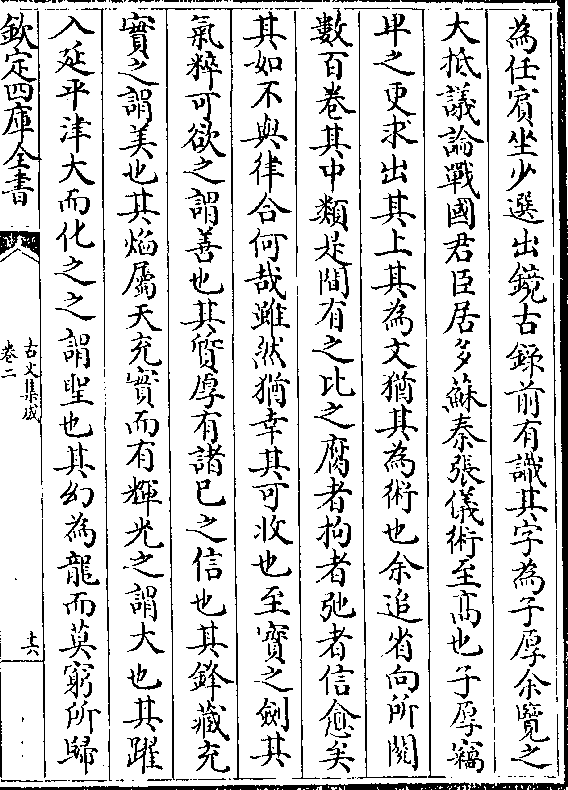 為任賓坐少選出鏡古錄前有識其字為子厚余覽之
大抵議論戰國君臣居多蘇秦張儀術至髙也子厚竊
卑之更求出其上其為文猶其為術也余追省向所閱
數百卷其中類是間有之比之腐者拘者弛者信愈矣
其如不與律合何哉雖然猶幸其可收也至寳之劍其
氣粹可欲之謂善也其質厚有諸已之信也其鋒藏充
實之謂美也其焰屬天充實而有輝光之謂大也其躍
入延平津大而化之之謂聖也其幻為龍而莫窮所歸
欽定四庫全書
古文集成
卷二
十六